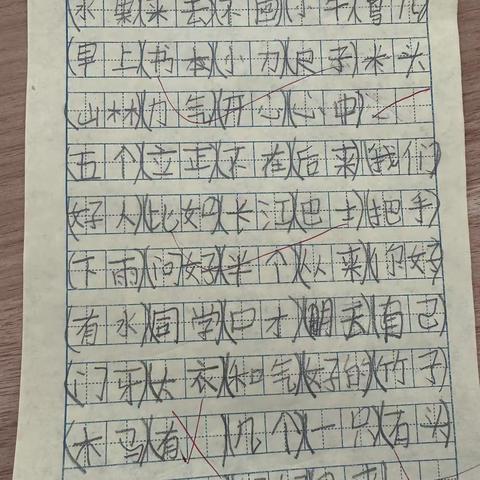 (水果)(来去)(不回)(小牛)(鸟儿)
(早上)(书本)(小刀)(尺子)木头
(山林)(力气)(开心)(心中)
(五个)(立正)(不在)(后来)(我们)
(好人)(比如)(长江)(巴士)(把手)
(下雨)(问好)(半个)(从来)(你好)
(有水)(同学)(口才)(明天)(自己)
(门牙)(大衣)(和气)(好的)(竹子)
(木马)(有 )(几个)(一只)(石头)